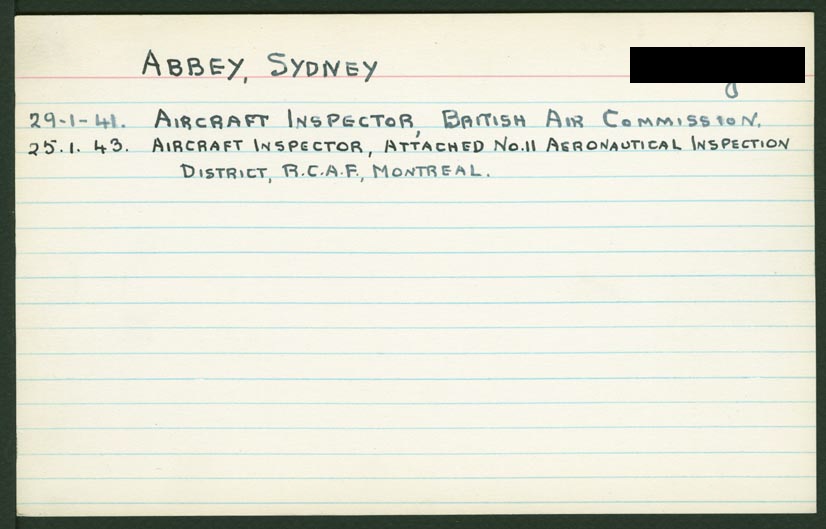 ABBEY, SYDNEY
29-1-41. AIRCRAFT INSPECTOR, BRITISH AIR COMMISSION.
25.1.43. AIRCRAFT INSPECTOR, ATTACHED NO.11 AERONAUTICAL INSPECTION
DISTRICT, R.C.A.F., MONTREAL.